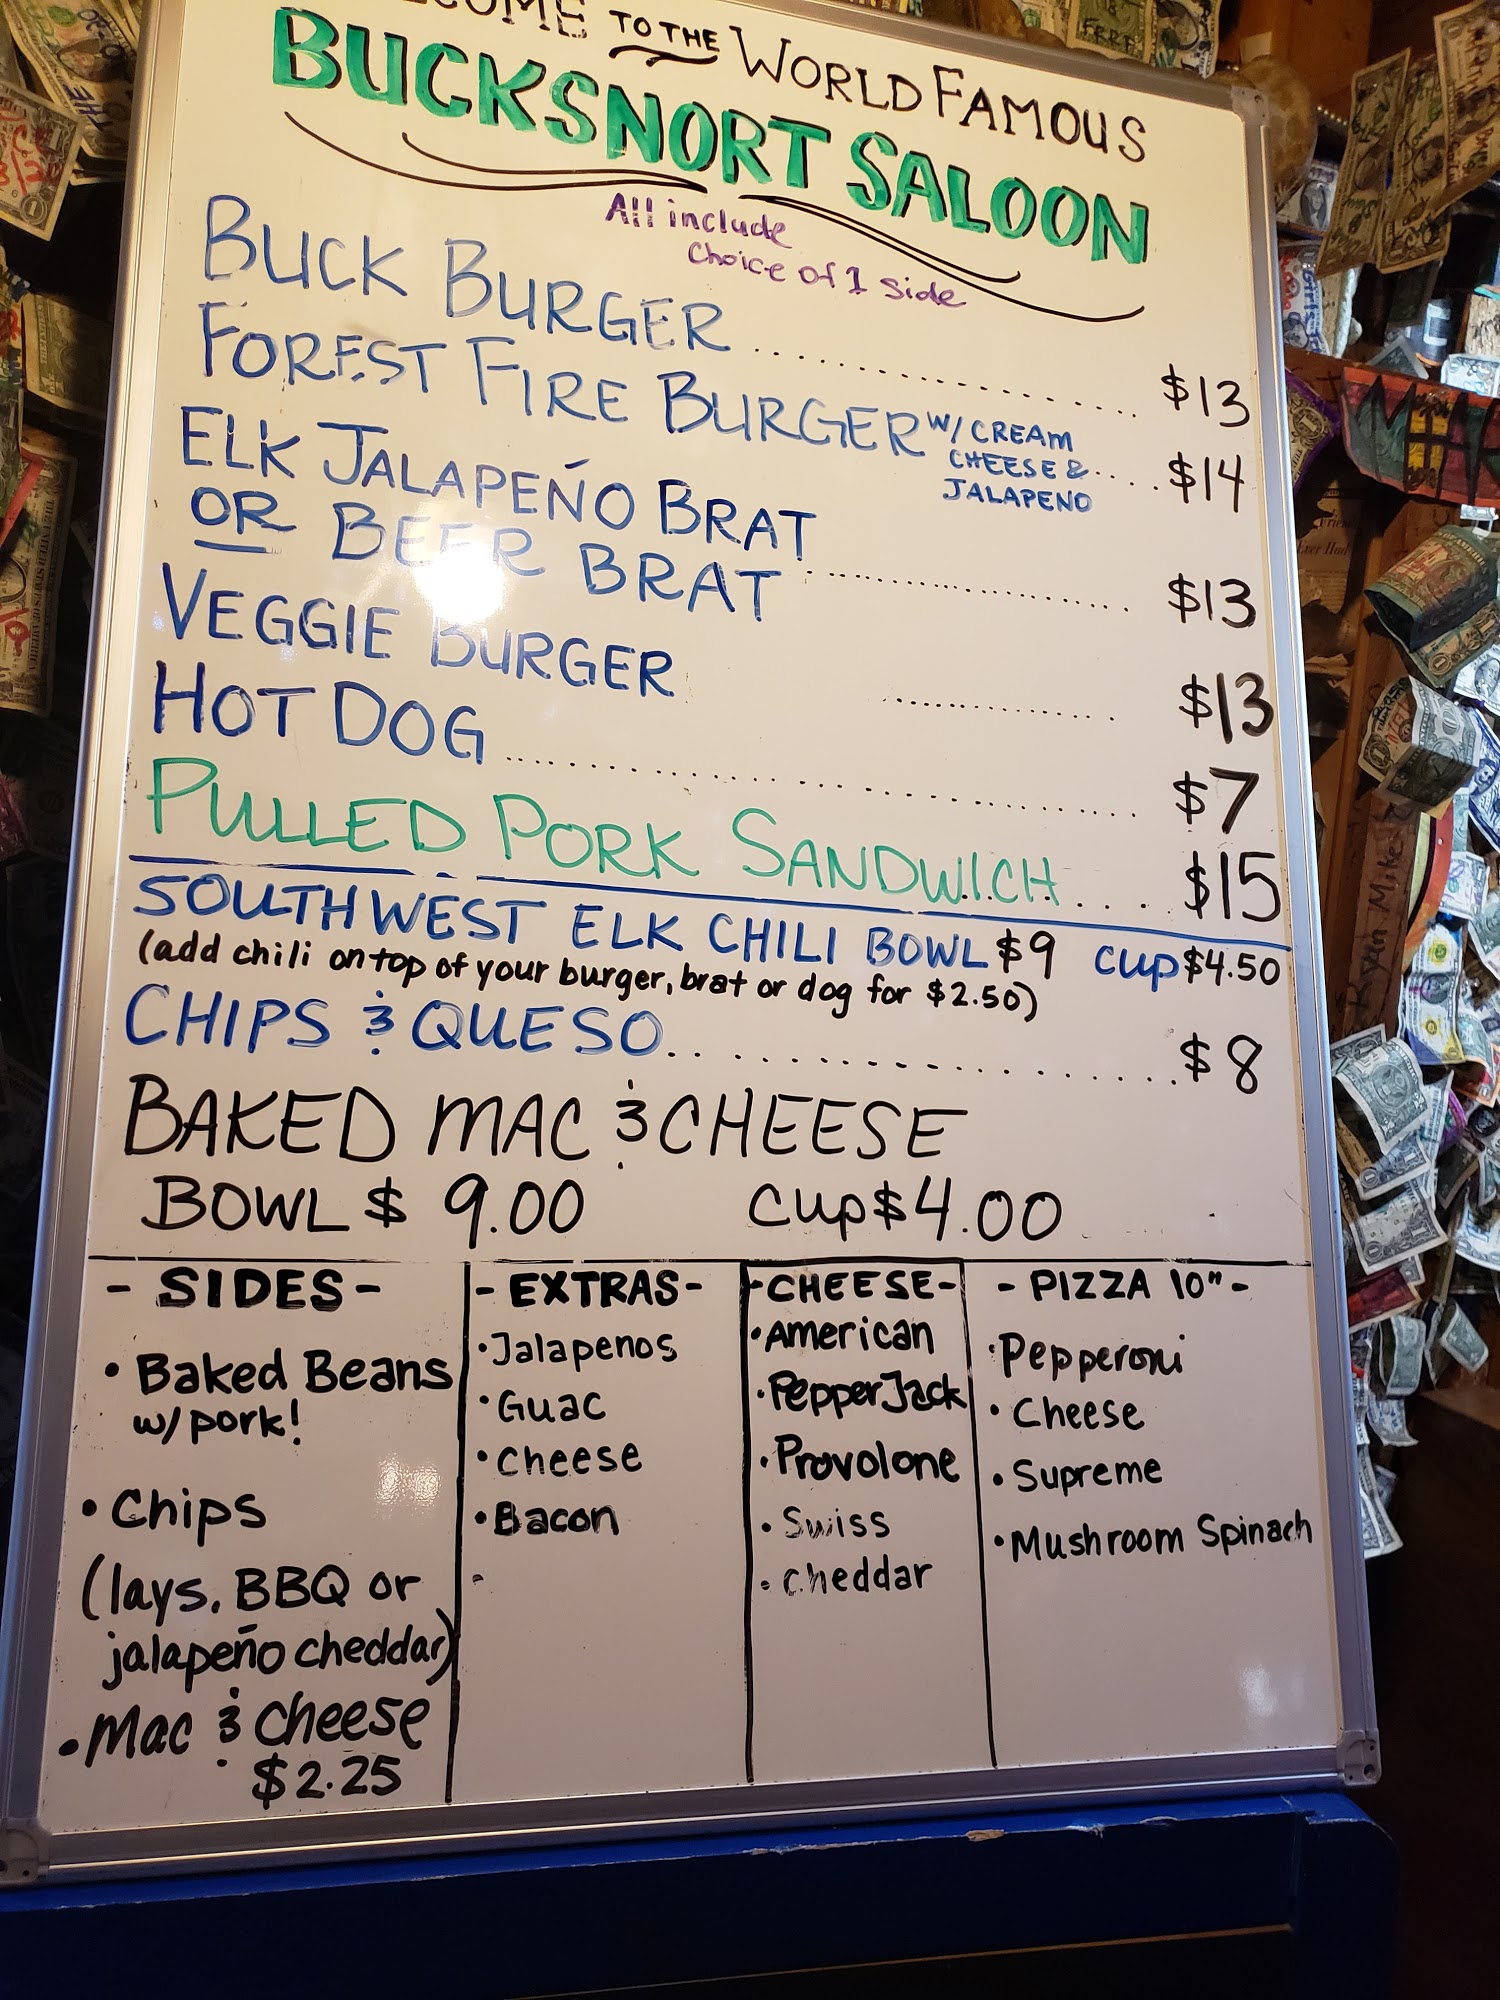 TO THE WORLD FAMOUS
BUCKSNORT SALOON
All include
choice of 1 side
BUCK BURGER .......... $13
FOREST FIRE BURGER W/ CREAM
CHEESE & ..... $14
JALAPENO
ELK JALAPEÑO BRAT
OR BEER BRAT .......... $13
VEGGIE BURGER .......... $13
HOT DOG .......... $7
PULLED PORK SANDWICH .... $15
SOUTHWEST ELK CHILI BOWL $9 CUP $4.50
(add chili on top of your burger, brat or dog for $2.50)
CHIPS & QUESO .......... $8
BAKED MAC & CHEESE
BOWL $ 9.00 CUP $4.00
- SIDES -
• Baked Beans
w/pork!
• Chips
(lays, BBQ or
jalapeño cheddar)
• Mac & Cheese
$2.25
- EXTRAS -
• Jalapenos
• Guac
• Cheese
• Bacon
•
- CHEESE -
• American
• Pepper Jack
• Provolone
• Swiss
• cheddar
- PIZZA 10" -
• Pepperoni
• Cheese
• Supreme
• Mushroom Spinach
Ryan Mike